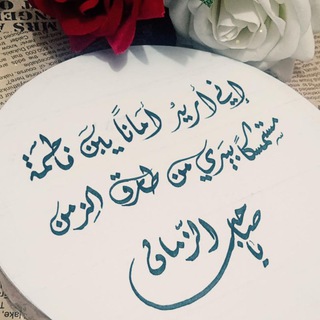 إني أريد أمانًا يا بن فاطمة
مستمسكًا بيدي من طارق الزمن
يا صاحب الزمان